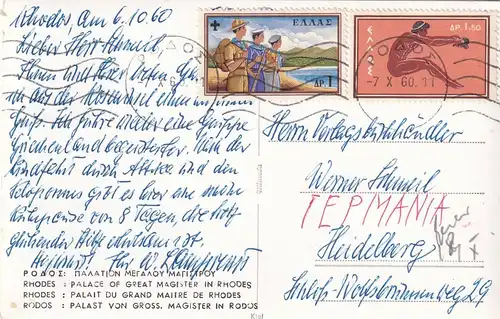 Rhodos, am 6.10.60
Lieber Herr Schmeil,
Ihnen und Ihrer lieben Gattin
von der Roseninsel einen
Gruß. Ich führe wieder eine Gruppe
Griechenland begeisterter. Nach der
Rundfahrt durch Attika und den
Peloponnes gibt es hier eine
Ruhepause von 8 Tagen, die trotz
glühender Hitze
Ihr W.
ΡΟΔΟΣ: ΠΑΛΑΤΙΟΝ ΜΕΓΑΛΟΥ ΜΑΓΙΣΤΡΟΥ
RHODES : PALACE OF GREAT MAGISTER IN RHODES
RHODES : PALAIT DU GRAND MAITRE DE RHODES
RODOS : PALAST VON GROSS. MAGISTER IN RODUS
ΕΛΛΑΣ
ΔΡ. 1
ΕΛΛΑΣ
ΔΡ. 1.50
-7 X 60.11
Herrn Verlagsbuchhändler
Werner Schmeil
ΓΕΡΜΑΝΙΑ
Heidelberg
Schloß-Wolfsbrunnenweg 29